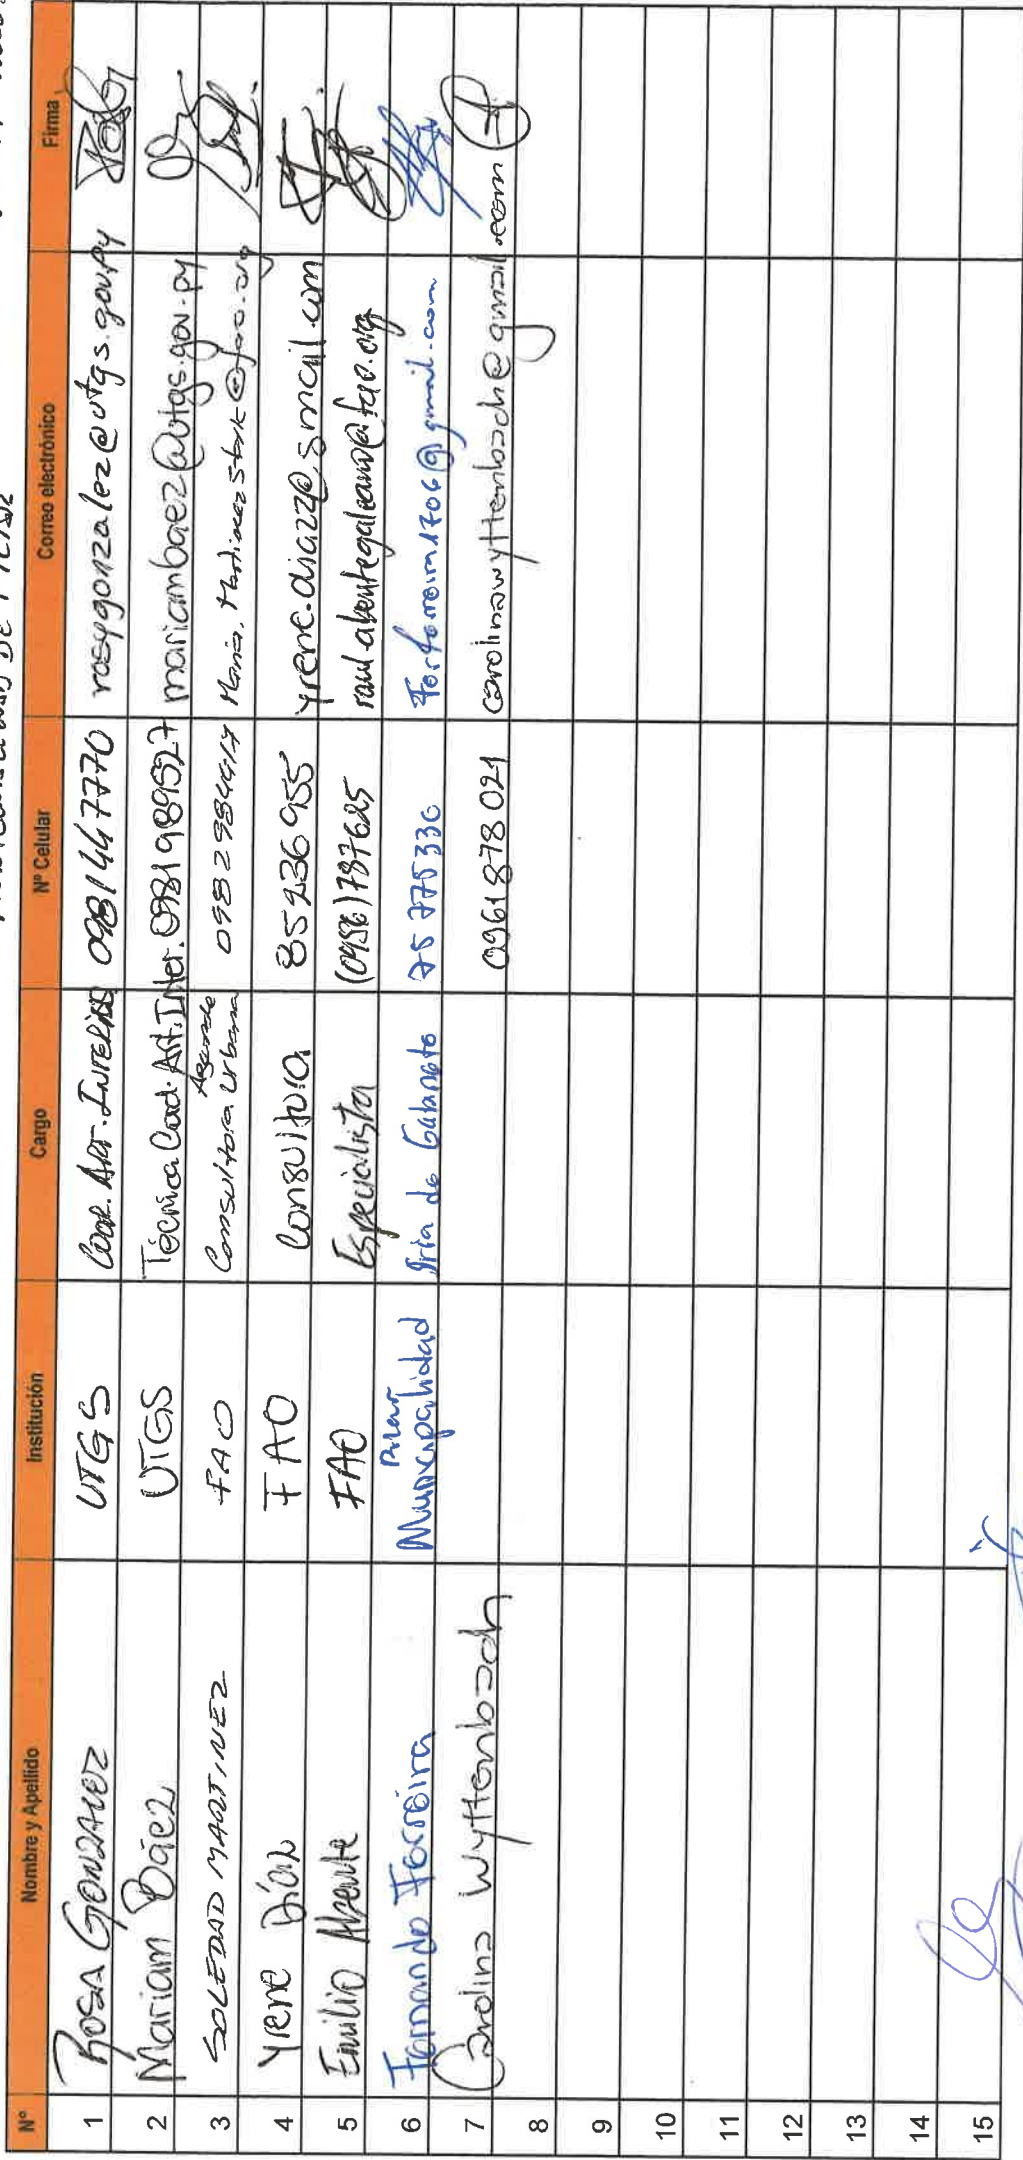 MUNICIPALIDAD DE PILAR
N° Nombre y Apellido Institución Cargo N° Celular Correo electrónico Firma
1 ROSA GONZALEZ UTGS COOR. ART. INTERINS 0981447770 rosygonzalez@utgs.gov.py
2 Mariam Báez UTGS Técnica Cood. Art. Inter. 0981989527 mariambaez@utgs.gov.py
3 SOLEDAD MARTINEZ FAO Consultora Urbana Agenda Maria.Martinez@fao.org
4 Yrene Díaz FAO Consultora 85236955 yrene.diazz@gmail.com
5 Emilio Abente FAO Especialista 787625 raul.abentegaleano@fao.org
6 Fernando Ferreira Municipalidad Pilar Sria de Gabinete 75 775330 Ferferreira1706@gmail.com
7 Carolina Wyttenbach 0961 878 021 carolinawyttenbach@gmail.com
8
9
10
11
12
13
14
15